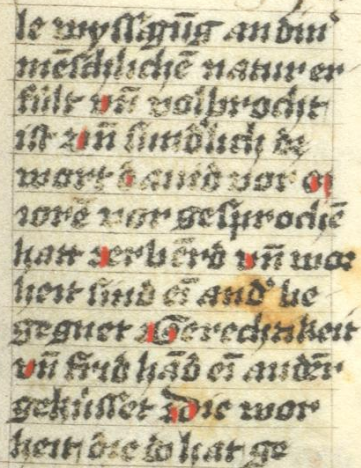 le wyssagūg an din᷑
mēschlichē natur er
fült vn̄ volprocht
ist vn̄ sundlich de
wort dauid vor
iorē vor gesprochē
hatt erbērd vn̄ wor
heit sind ei᷑ and᷑ be
gegnet Gerechtikeit
vn̄ frid hād ei᷑ andēr
geküsset Die wor
heit die do hat ge